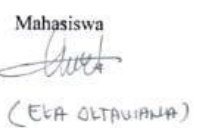 Mahasiswa
(ELA OLTAVIANA)